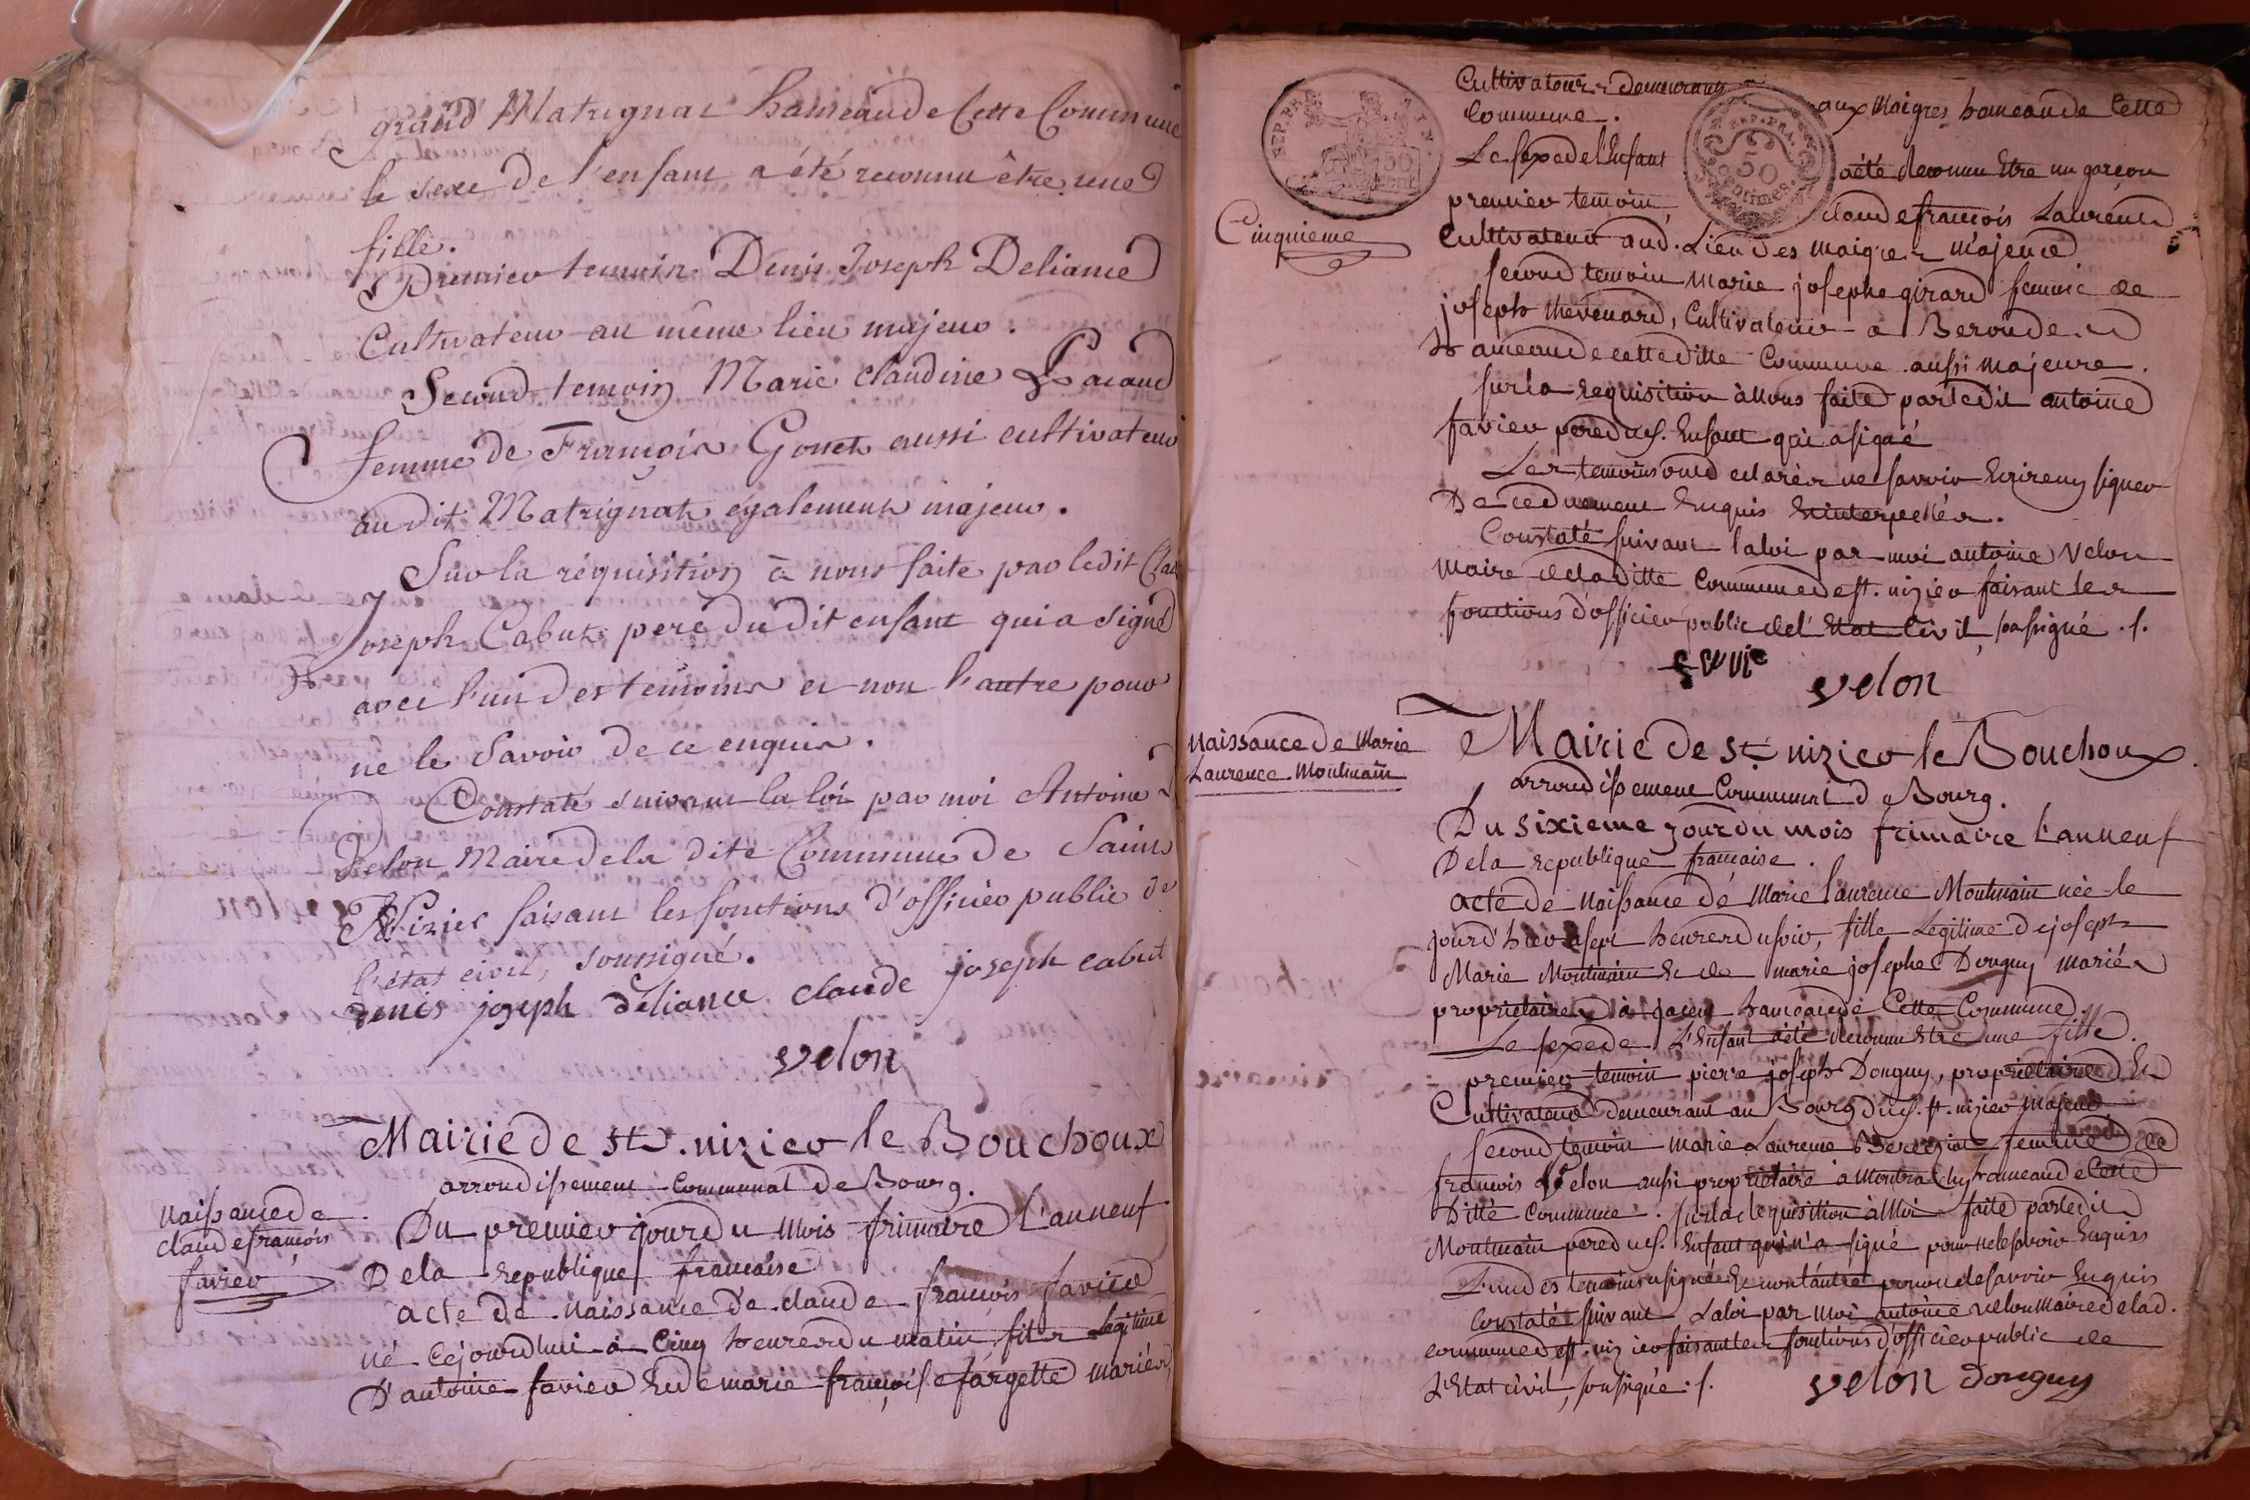 grand Matrignat hameau de Cette Commune
le sexe de l'enfant a été reconnu être une
fille.
Premier temoin Denis Joseph Deliance
Cultivateur au même lieu majeur.
Second temoin Marie claudine
femme de François Gonet aussi cultivateur
audit Matrignat également majeur.
Sur la réquisition à nous faite par ledit
Joseph Cabut pere dudit enfant qui a signé
avec l'un des temoins et non l'autre pour
ne le Savoir de ce enquis.
Constaté suivant la loi par moi Antoine
Velon Maire de la dite Commune de Saint
Nizier faisant les fonctions d'officier public de
l'état civil, soussigné.
denis joseph deliance claude joseph cabut
velon
Mairie de st. nizier le Bouchoux
arrondissement Communal de Bourg.
naissance de
claude françois
favier
Du premier jour du mois frimaire L'an neuf
De la republique francaise
acte de naissance de claude françois favier
né cejourdhui à Cinq heures du matin, fils legitime
D'antoine favier Et de marie françoise fargette mariés
Cultivateurs demeurant aux Maigres hameau de Cette
Commune.
Le sexe de l'Enfant a été Reconnu Etre un garçon
premier temoin claude françois Laurent
Cinquieme
STP. PRA
REP. FRA.
50
centimes.
Cultivateur aud. Lieu des maigres majeur
second temoin marie josephe girard femme de
joseph thevenard, Cultivateur à Beroude
hameau de cette ditte Commune aussi majeure.
sur la requisition à Nous faite par ledit antoine
favier pere dud. Enfant qui a signé
Les temoins ont declarés ne savoir Ecrire ny signer
De ce duement Enquis Et interpellés.
Constaté suivant la loi par moi antoine Velon
maire de la ditte Commune de st. nizier faisant les
fonctions d'officier public de l'Etat Civil, soussigné ./.
velon
Naissance de Marie
Laurence Montmain
Mairie de st. nizier le Bouchoux
arrondissement Communal de Bourg.
Du sixieme jour du mois frimaire L'an neuf
De la republique francaise.
acte de Naissance de Marie Laurence Montmain née le
jour d'hier a sept heures du soir, fille Legitime de joseph
Marie Montmain Et de marie josephe Donguy mariés
propriétaires à hameau de Cette Commune.
Le sexe de L'Enfant a été Reconnu Etre une fille.
premier temoin pierre joseph Donguy, proprietaire Et
Cultivateur demeurant au Bourg dud. st. nizier majeur
second temoin marie Laurence femme de
francois Velon aussi propriétaire à hameau de Cette
Ditte Commune. sur la Requisition à Moi faite par ledit
Montmain pere dud. Enfant qui n'a signé pour ne le savoir Enquis
L'un des temoins a signé Et non l'autre pour ne le savoir Enquis
Constaté suivant La loi par moi antoine velon Maire de lad.
commune de st. nizier faisant les fonctions d'officier public de
L'Etat civil, soussigné ./. velon Donguy